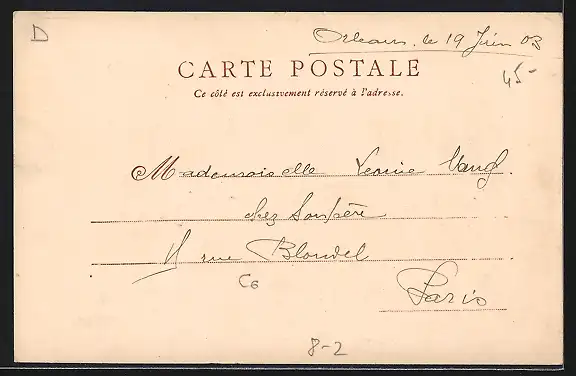 D
Orléans, le 19 Juin 03
CARTE POSTALE
45-
Ce côté est exclusivement réservé à l'adresse.
Mademoiselle Leonie
chez Sonpère
rue Blondel
C6
Paris
8-2